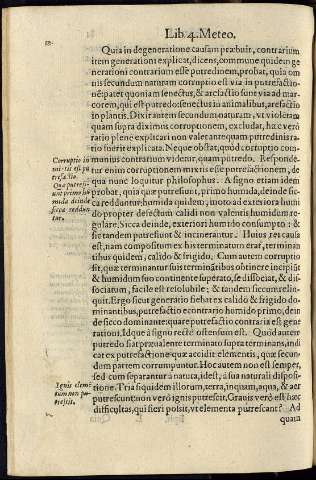 Lib. 4. Meteo.
Quia in degeneratione causam præbuit, contrarium
item generationi explicat, dicens, commune quidem ge
nerationi contrarium esse putredinem, probat, quia om
nis secundum naturam corruptio est via in putrefactio
nē: patet quoniam senectus, & arefactio sunt via ad mar
corem, qui est putredo: senectus in animalibus, arefactio
in plantis. Dixit autem secundum naturam, vt violetam
quam supra diximus corruptionem, excludat, hæc verò
ratio plene explicari non valet ante quam putredinis ra
tio fuerit explicata. Neque obstat, quòd corruptio com
munius contrarium videtur, quam putredo. Responde
tur enim corruptionem mixti esse putrefactionem, de
qua nunc loquitur philosophus: A signo etiam idem
probat, quia quæ putrefiunt, primo humida, deinde sic
ca redduntur: humida quidem, moto ad exteriora humi
do propter defectum calidi non valentis humidum re-
gulare. Sicca deinde, exteriori humido consumpto: &
sic tandem putrescunt & incinerantur. Huius rei causa
est, nam compositum ex his terminatum erat, terminan
tibus quidem, calido & frigido. Cum autem corruptio
sit, quæ terminantur suis terminātibus obtinere incipiūt
& humidum suo continente superato, se dissociat, & dis
sociatum, facile est resolubile; & tandem siccum relin-
quit. Ergo sicut generatio fiebat ex calido & frigido do-
minantibus, putrefactio econtrario humido primo, dein
de sicco dominante: quare putrefactio contraria est gene
rationi. Idque à signo rectè ostensum est. Quòd autem
putredo fiat præualente terminato supra terminans, indi
cat ex putrefactione quæ accidit elementis, quæ secun-
dum partem corrumpuntur. Hoc autem non est semper,
sed cum separantur à natura, id est, à sua naturali disposi-
tione. Tria siquidem illorum, terra, inquam, aqua, & aer
putrescunt: non verò ignis putrescit. Grauis verò est hæc
difficultas, qui fieri possit, vt elementa putrescant? Ad
quam
Corruptio
mixti est pu
trefactio.
Quæ putresc
unt primo hu
mida deinde
sicca reddun
tur.
Ignis eleme
tum non pu
trescit.